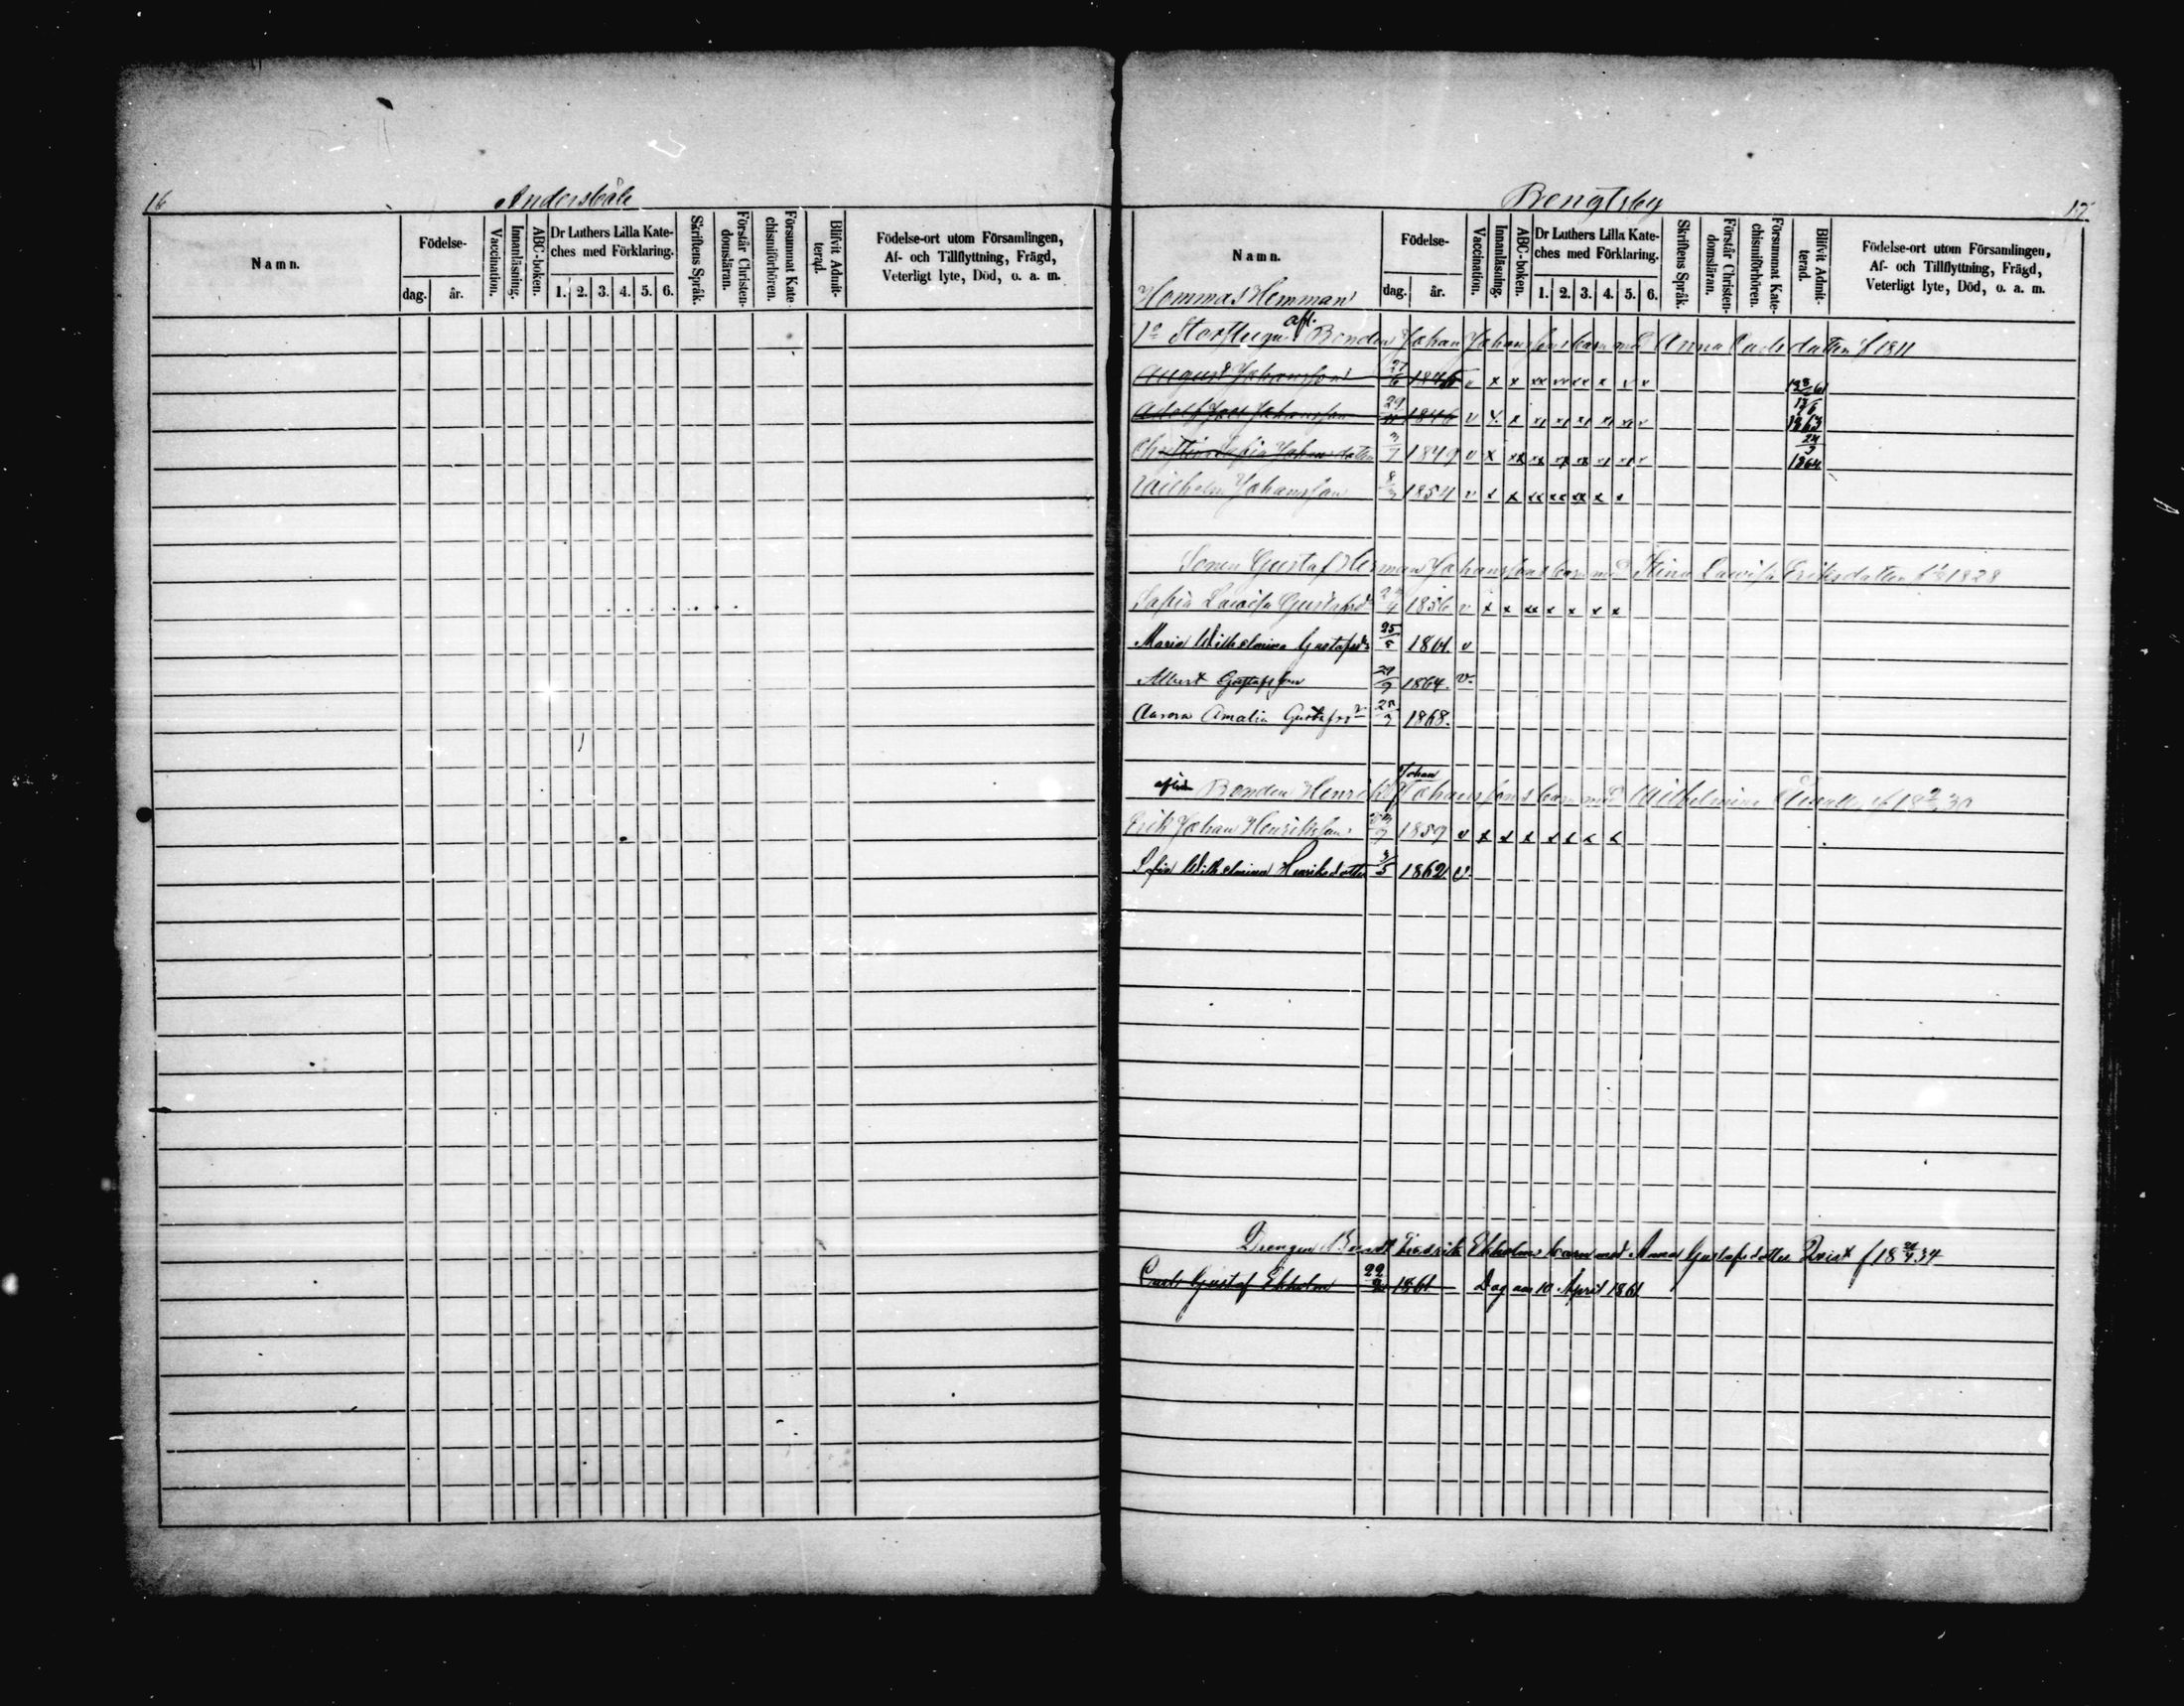 16
Andersböle
Namn.
Födelse-
dag. år.
Vaccination.
Innanläsning.
ABC-boken.
Dr Luthers Lilla Kate-
ches med Förklaring.
1. 2. 3. 4. 5. 6.
Skriftens Språk.
Förstår Christen-
domsläran.
Försummat Kate-
chismiförhören.
Blifvit Admit-
terad.
Födelse-ort utom Församlingen,
Af- och Tillflyttning, Frägd,
Veterligt lyte, Död, o. a. m.
Bengtsby
17
Namn.
Födelse-
dag. år.
Vaccination.
Innanläsning.
ABC-boken.
Dr Luthers Lilla Kate-
ches med Förklaring.
1. 2. 3. 4. 5. 6.
Skriftens Språk.
Förstår Christen-
domsläran.
Försummat Kate-
chismiförhören.
Blifvit Admit-
terad.
Födelse-ort utom Församlingen,
Af- och Tillflyttning, Frägd,
Veterligt lyte, Död, o. a. m.
Hommas Hemman
afl. Bonden Johan Johanssons barn med Anna datter f 1811
August Johansson v x x xx
Johansson 29 1846 v x x
Johansdatter 3/7 1849 v x 1864
Wilhelm Johansson 8/3 1854 v x x xx xx xx x x
Sonen Gustaf Herman Johanssons barn med Stina Lovisa Eriksdatter 1828
Sofia Lovisa Gustafsdr 1856 v x x xx x x x x
Maria Wilhelmina Gustafsdr 25/5 1861. v
Albert Gustafsson 29/9 1864. v.
Aurora Amalia Gustafsdr 1868.
afledne Bonden Henrik Johan Johanssons barn med Wilhelmina
Erik Johan Henriksson 1859 v x x x x x x x
Sofia Wilhelmina Henriksdotter 3/5 1862 v
Drengen Berndt Fredrik Ekholms barn med Anna Gustafsdotter Qvist f 18 34
Carl Gustaf Ekholm 22/2 1861 Dog den 10 April 1861